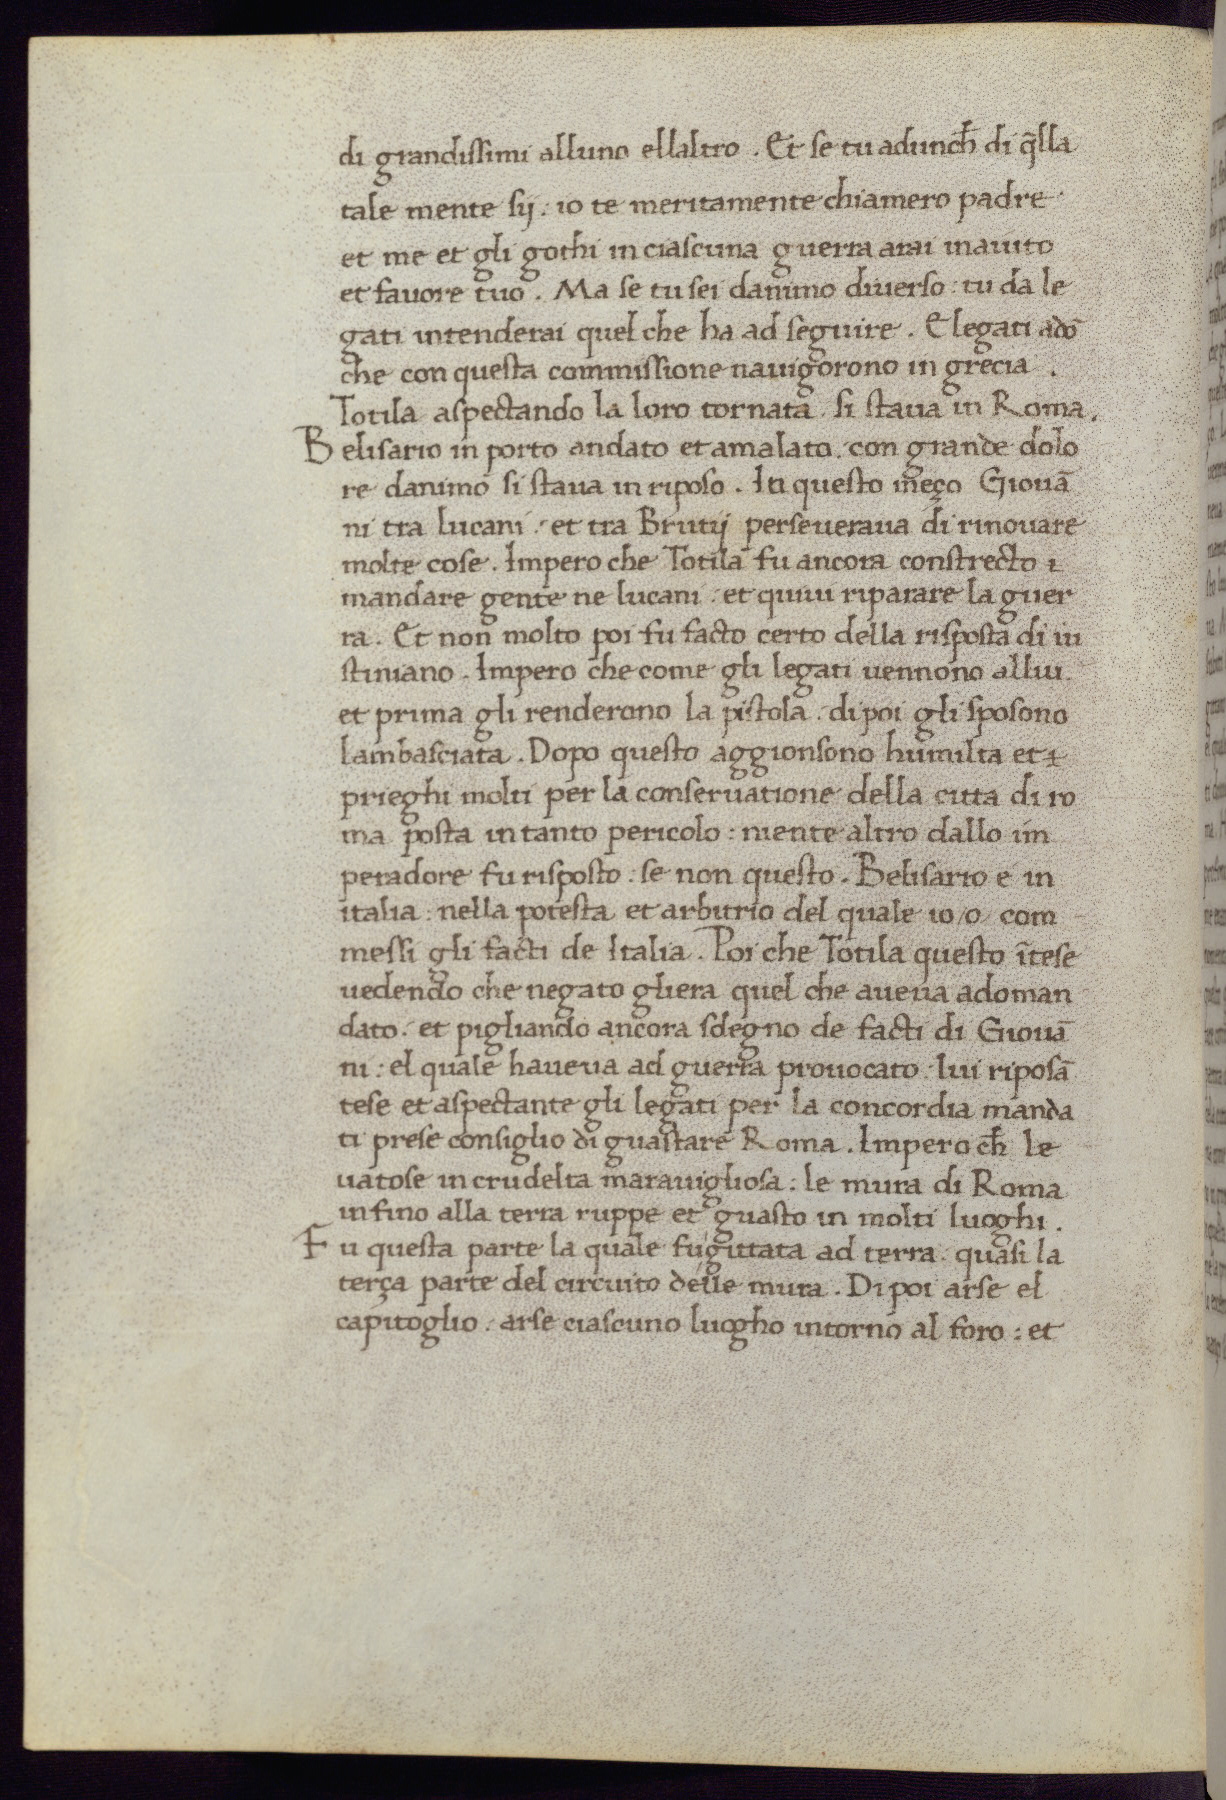 di grandissimi alluno ellaltro . Et se tu adunch̄ di q̄lla
tale mente sij . io te meritamente chiamero padre
et me et gli gothi in ciascuna guerra arai inaiuto
et favore tuo . Ma se tu sei danimo diverso : tu da le
gati intenderai quel che ha ad seguire . E legati adō
che con questa commissione navigorono in grecia .
Totila aspectando la loro tornata . si stava in Roma .
Belisario in porto andato et amalato . con grande dolo
re danimo si stava in riposo . In questo meço Giovā
ni tra lucani . et tra Brutij perseverava di rinovare
molte cose . Impero che Totila fu ancora constrecto
mandare gente ne lucani . et quivi riparare la guer
ra . Et non molto poi fu facto certo della risposta di iu
stiniano . Impero che come gli legati vennono allui .
et prima gli renderono la pistola . di poi gli sposono
lambasciata . Dopo questo aggionsono humilta et
prieghi molti per la conservatione della citta di ro
ma posta in tanto pericolo : niente altro dallo im
peradore fu risposto : se non questo . Belisario e in
italia : nella potesta et arbitrio del quale io /o/ com
messi gli facti de Italia . Poi che Totila questo ītese
vedendo che negato gliera quel che aveva adoman
dato . et pigliando ancora sdegno de facti di Giovā
ni : el quale haveva ad guerra provocato . lui riposā
tese et aspectante gli legati per la concordia manda
ti prese consiglio di guastare Roma . Imperoch̄ le
vatose in crudelta maravigliosa : le mura di Roma
infino alla terra ruppe et guasto in molti luoghi .
Fu questa parte la quale fu gittata ad terra . quasi la
terça parte del circuito delle mura . Di poi arse el
capitoglio . arse ciascuno luogho intorno al foro : et